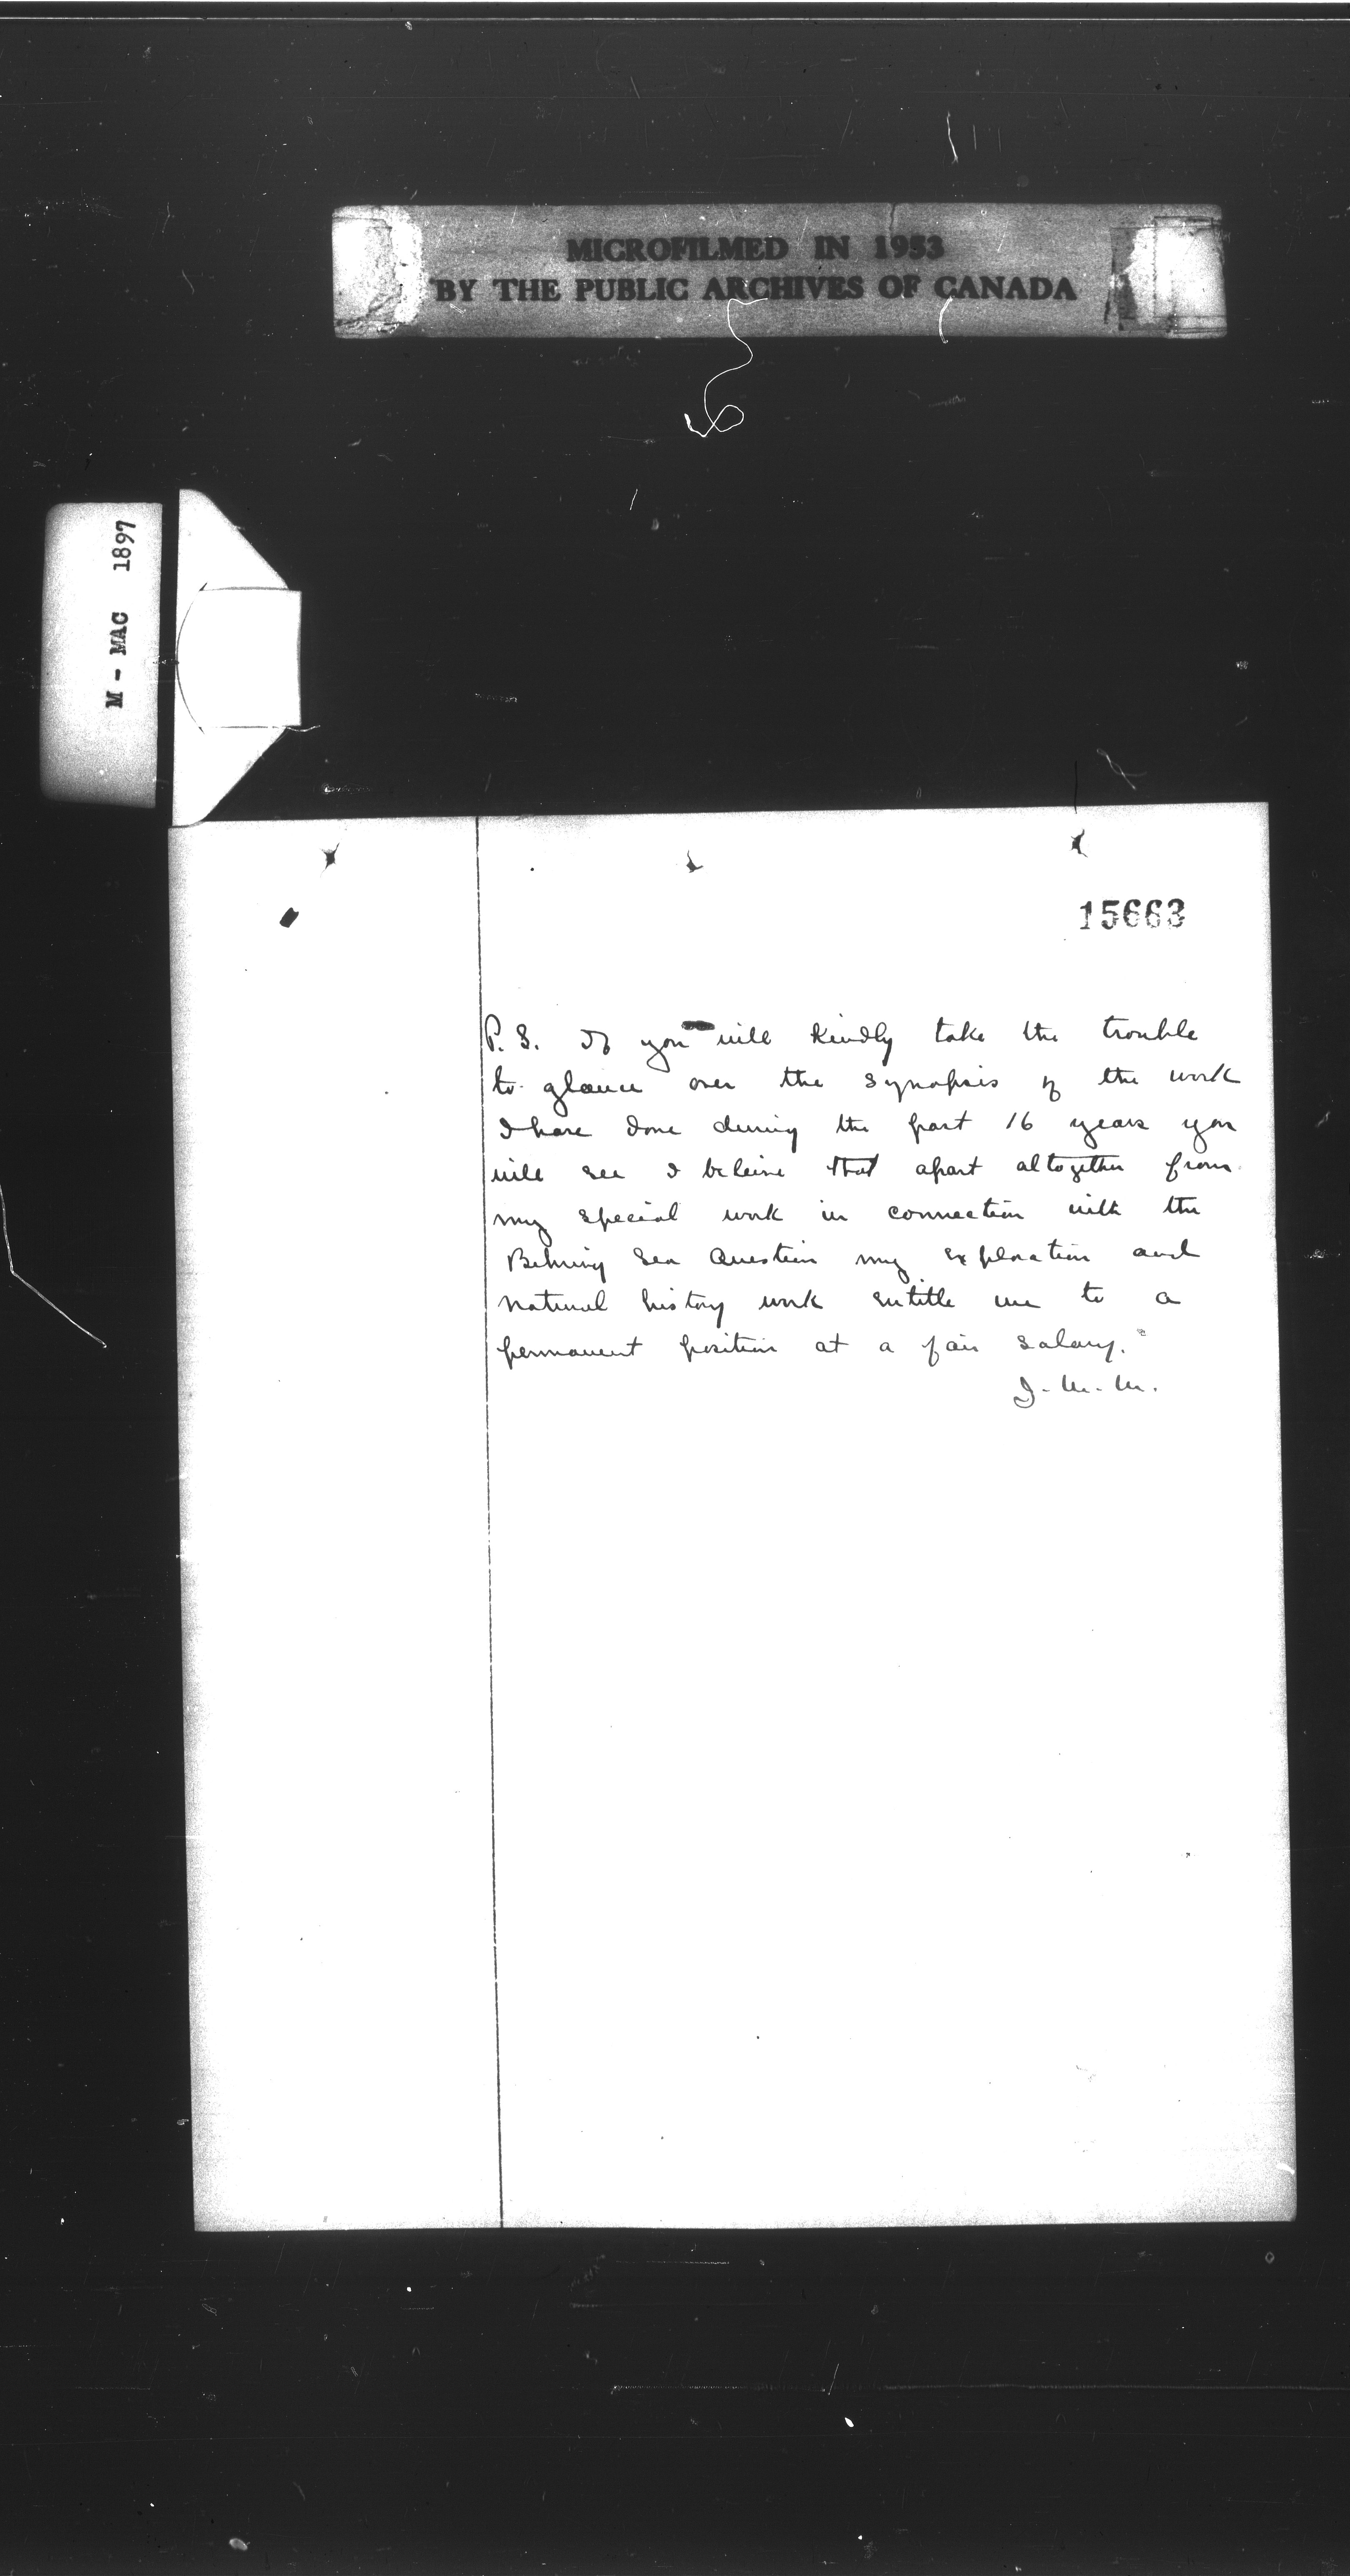 MICROFILMED IN 1953
BY THE PUBLIC ARCHIVES OF CANADA
M - MAC 1897
15663
P.S. If you will kindly take the trouble
to glance over the synopsis of the work
I have done during the past 16 years you
will see I beleive that apart altogether from
my special work in connection with the
Behring Sea Question my exploration and
natural history work entitle me to a
permanent position at a fair salary.
J. M. M.